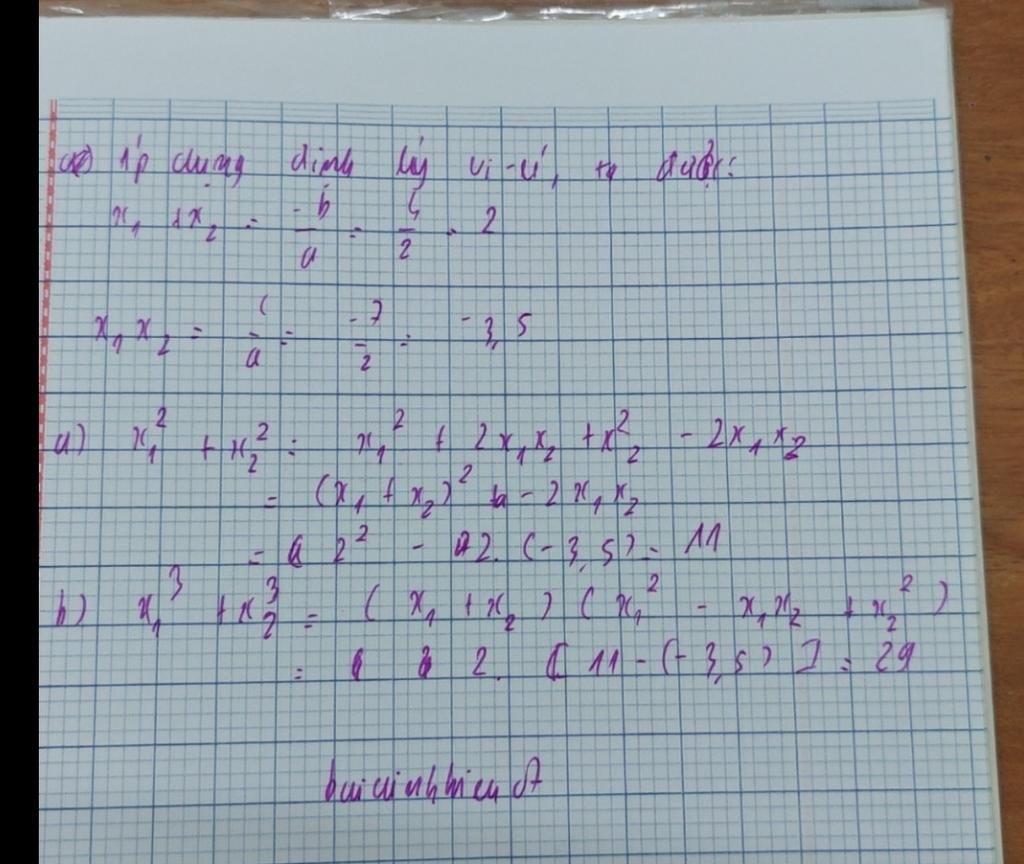 áp dụng định lý vi-ét, ta được:
x₁ + x₂ = -b/a = 4/2 = 2
x₁x₂ = c/a = -7/2 = -3,5
a) x₁² + x₂² = x₁² + 2x₁x₂ + x₂² - 2x₁x₂
= (x₁ + x₂)² - 2x₁x₂
= 2² - 2.(-3,5) = 11
b) x₁³ + x₂³ = (x₁ + x₂)(x₁² - x₁x₂ + x₂²)
= 2.[11-(-3,5)] = 29